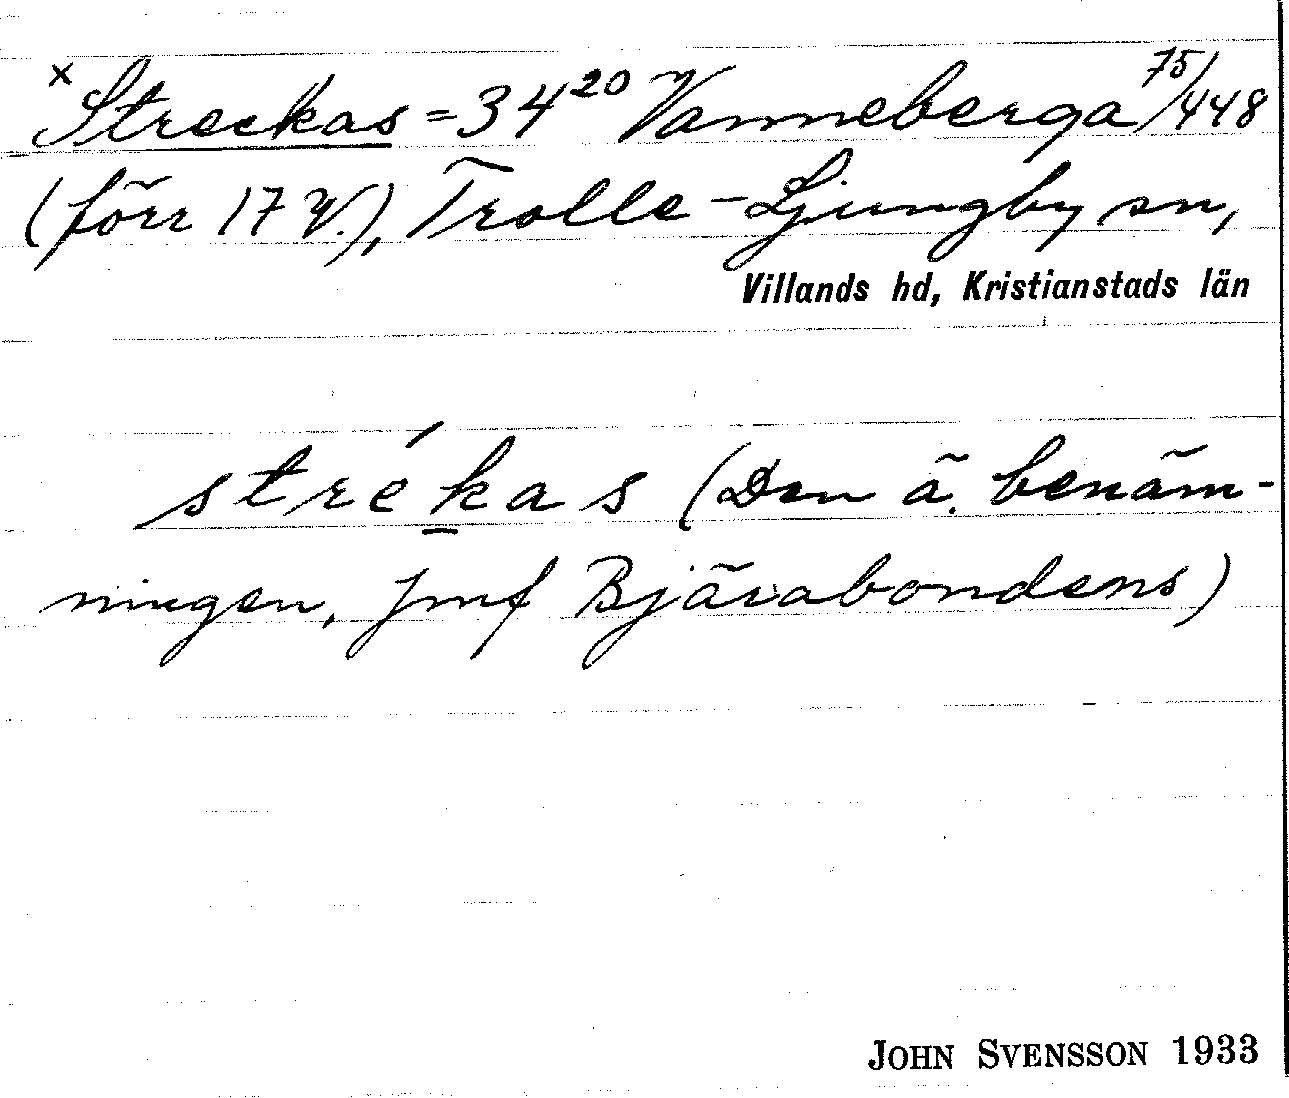 × Streckas = 34²⁰ Vanneberga 75/448
(förr 17 V.), Trolle-Ljungby sn,
Villands hd, Kristianstads län
strékas (Den ä. benäm-
ningen, jmf Bjärabondens)
JOHN SVENSSON 1933